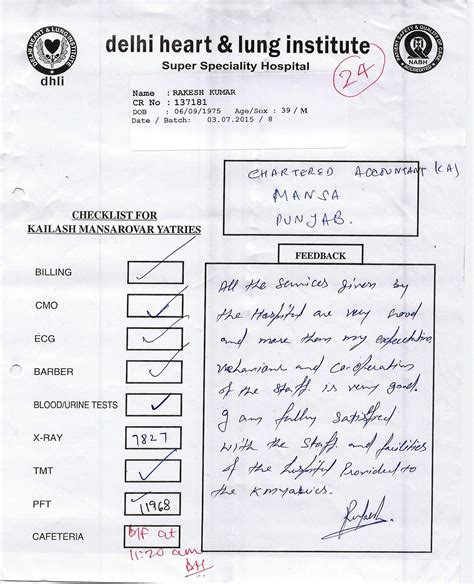 DELHI HEART & LUNG INSTITUTE
dhli
delhi heart & lung institute
Super Speciality Hospital
NABH
24
Name : RAKESH KUMAR
CR No : 137181
DOB : 06/09/1975 Age/Sex : 39 / M
Date / Batch: 03.07.2015 / 8
CHARTERED ACCOUNTANT (CA)
MANSA
PUNJAB.
CHECKLIST FOR
KAILASH MANSAROVAR YATRIES
BILLING
CMO
ECG
BARBER
BLOOD/URINE TESTS
X-RAY 7827
TMT
PFT 11968
CAFETERIA B/F at
11:20 am
FEEDBACK
All the services given by
the Hospital are very
and more them my expectation
and co-operation
of the staff is very good.
I am fully satisfied
with the staff and facilities
of the hospital provided to
the kmyatries.